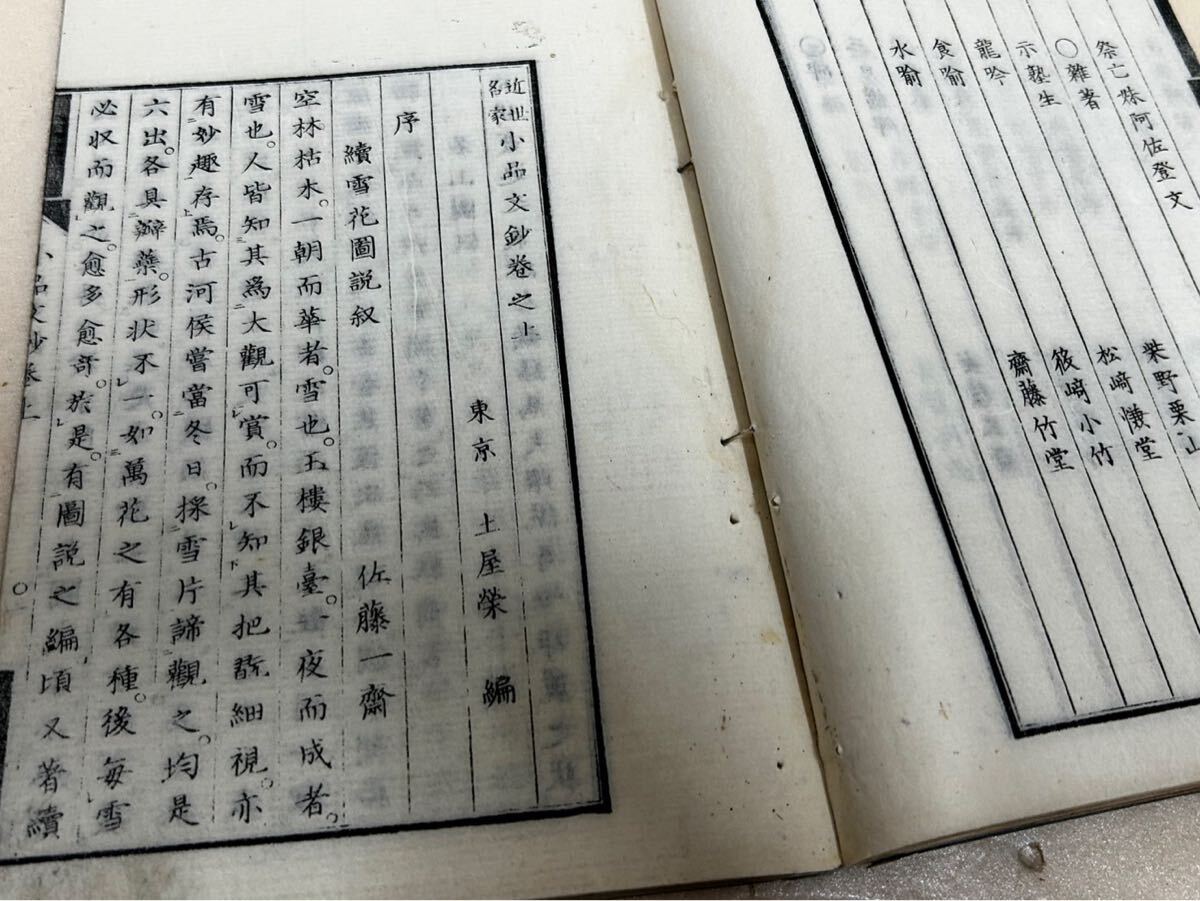 祭亡姊阿佐登文 柴野栗山
○雜著
示塾生 松﨑慊堂
龍吟 篠﨑小竹
食喻 齋藤竹堂
水喻
近世名家小品文鈔卷之上
東京 土屋榮 編
序
續雪花圖説叙 佐藤一齋
空林枯木。一朝而華者。雪也。玉樓銀臺。一夜而成者。
雪也。人皆知其爲大觀可賞。而不知其把翫細視。亦
有妙趣存焉。古河侯嘗當冬日。採雪片諦觀之。均是
六出。各具瓣蘂。形状不一。如萬花之有各種。後每雪
必収而觀之。愈多愈奇。於是。有圖説之編。頃又著續
小品文鈔卷上